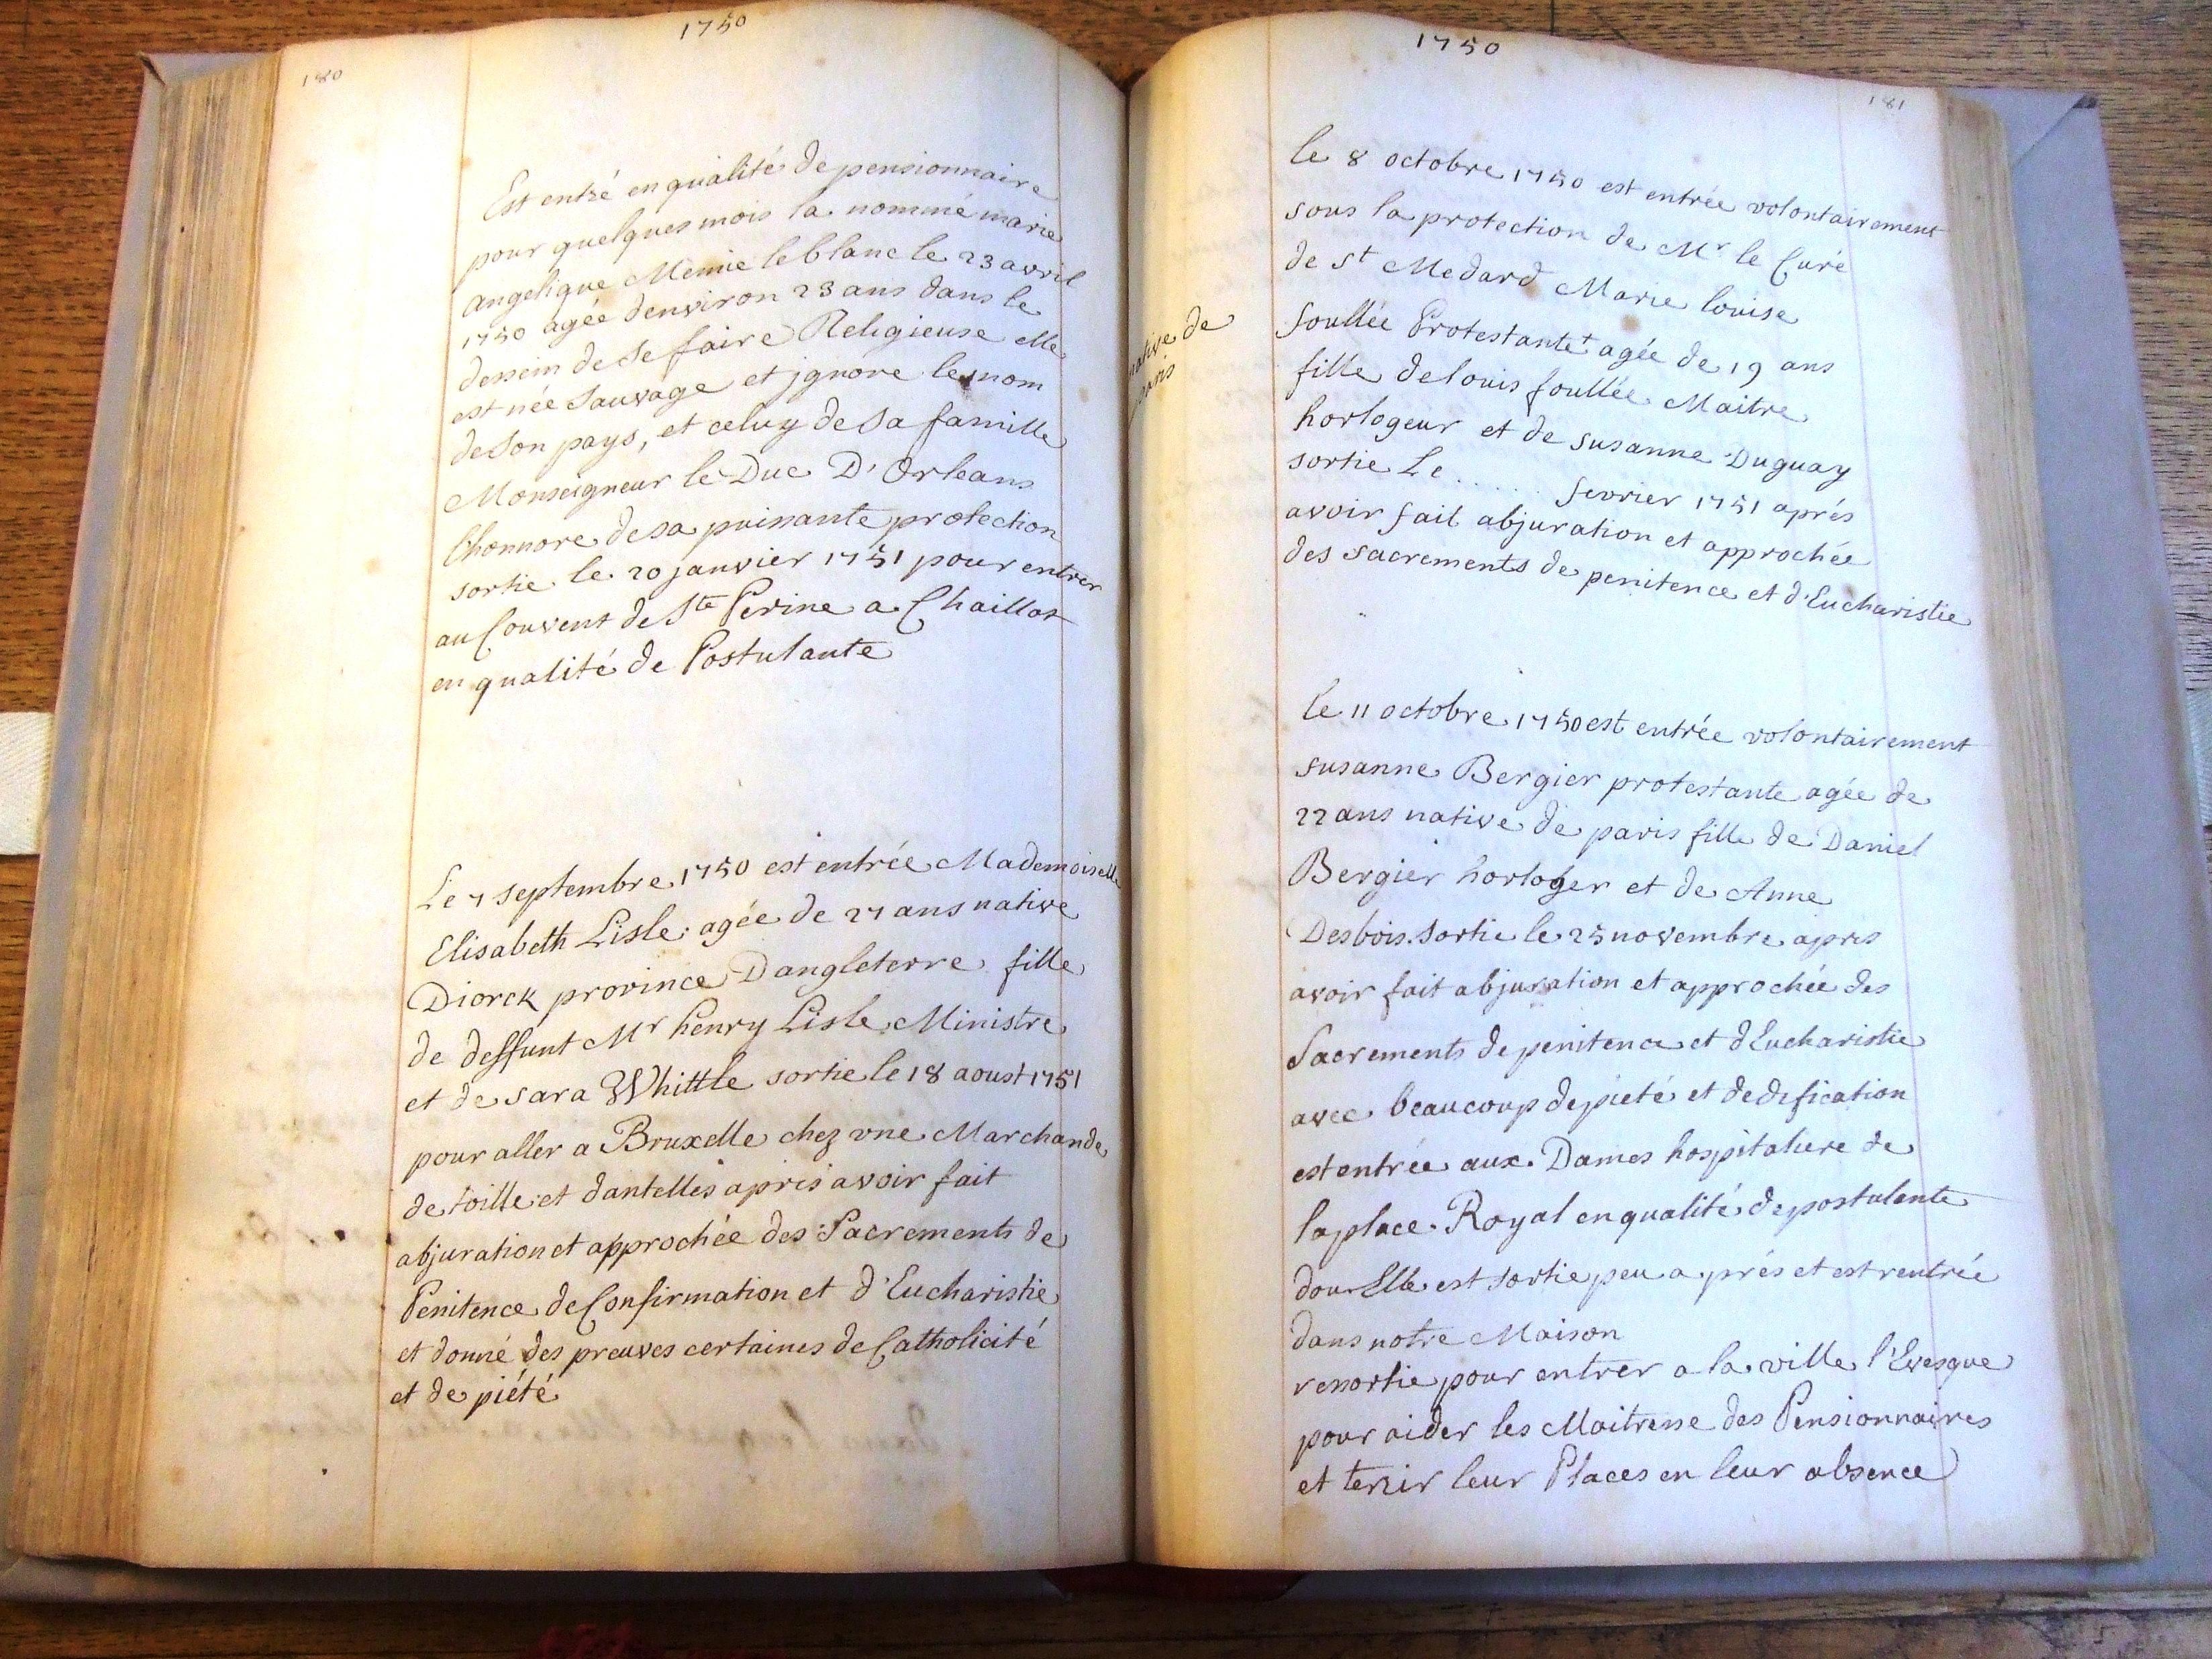 1750
180
Est entré en qualité de pensionnaire
pour quelques mois la nommé marie
angelique Memie leblanc le 23 avril
1750 agée denviron 23 ans dans le
dessein de se faire Religieuse elle
est née Sauvage et jgnore le nom
de Son pays, et celuy de Sa famille
Monseigneur le Duc D'Orleans
lhonnore de sa puissante protection
sortie le 20 janvier 1751 pour entrer
au Couvent de Ste Perine a Chaillot
en qualité de Postulante
Le 7 septembre 1750 est entrée Mademoiselle
Elisabeth Lisle agée de 27 ans native
Diorck province Dangleterre fille
de deffunt Mr henry Lisle Ministre
et de Sara Whittle sortie le 18 aoust 1751
pour aller a Bruxelle chez vne Marchande
de toille et dantelles apris avoir fait
abjuration et approchée des Sacrements de
Penitence de Confirmation et d'Eucharistie
et donné des preuves certaines de Catholicité
et de piété
1750
181
le 8 octobre 1750 est entrée volontairement
sous la protection de Mr le Curé
de st Medard Marie louise
foullée Protestante+ agée de 19 ans
native de
paris
fille de louis foullée Maitre
horlogeur et de susanne Duguay
sortie Le ..... fevrier 1751 aprés
avoir fait abjuration et approchée
des sacrements de penitence et d'Eucharistie
le 11 octobre 1750 est entrée volontairement
susanne Bergier protestante agée de
22 ans native de paris fille de Daniel
Bergier horloger et de Anne
Desbois. Sortie le 25 novembre apris
avoir fait abjuration et approchée des
Sacrements de penitence et dEucharistie
avec beaucoup de pieté et dedification
est entrée aux Dames hospitaliere de
la place Royal en qualité de postulante
dou Elle est sortie peu aprés et est rentrée
dans notre Maison
ressortie pour entrer a la ville l'Evesque
pour aider les Maitresse des Pensionnaires
et tenir leur Places en leur absence